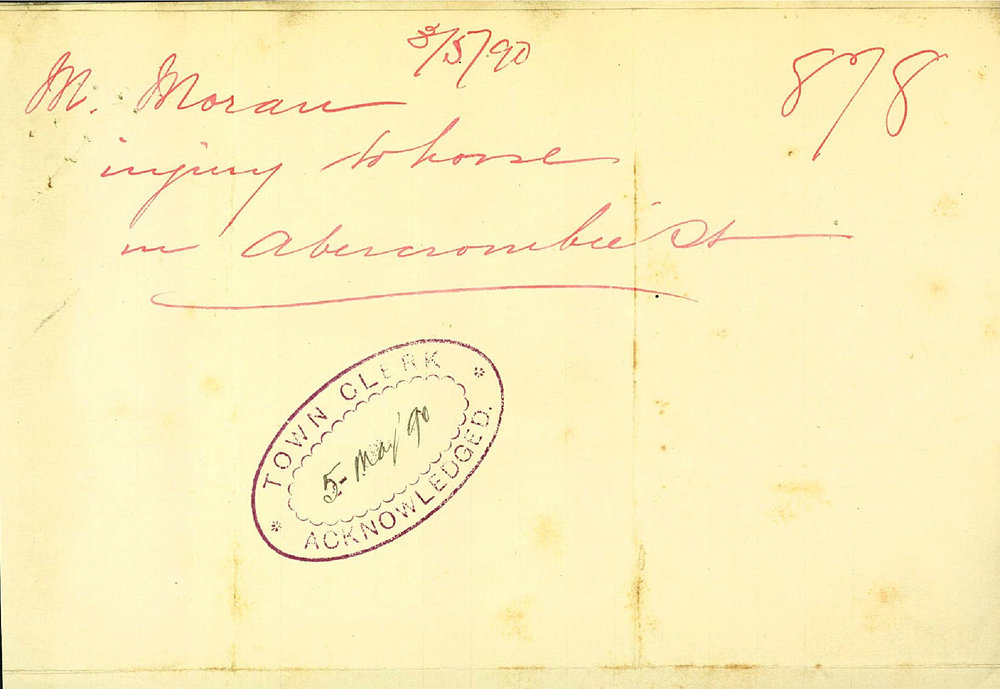 3/5/90
878
M. Moran
injury to horse
in Abercrombie St
TOWN CLERK
5- May/90
ACKNOWLEDGED.